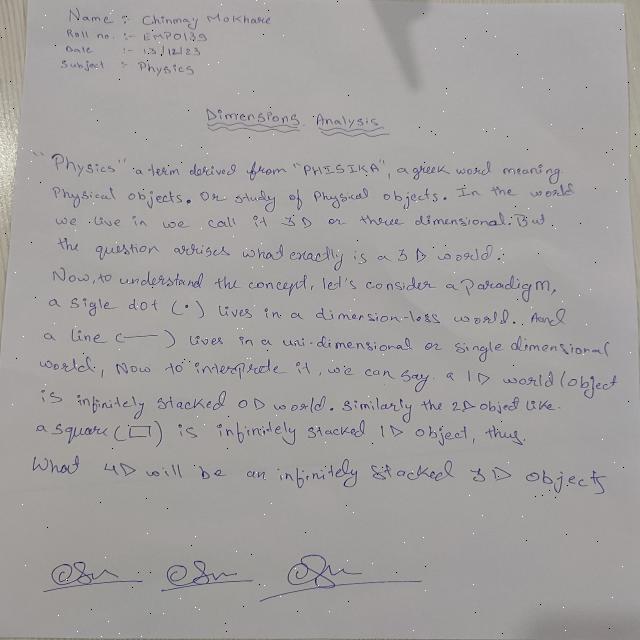 Name :- Chinmay Mokhare
Roll no. :- EMP0139
Date :- 13/12/23
Subject :- Physics
Dimensions Analysis
"Physics" a term derived from "PHISIKA", a greek word meaning
Physical objects. Or study of Physical objects. In the world
we live in we call it 3D or three dimensional. But
the question arrises what exactly is a 3D world.
Now, to understand the concept, let's consider a Paradigm,
a sigle dot (•) lives in a dimension-less world. And
a line (—) lives in a uni-dimensional or single dimensional
world, Now to interprete it, we can say a 1D world/object
is infinitely stacked 0D world. Similarly the 2D object like
a square (□) is infinitely stacked 1D object, thus
What 4D will be an infinitely stacked 3D objects